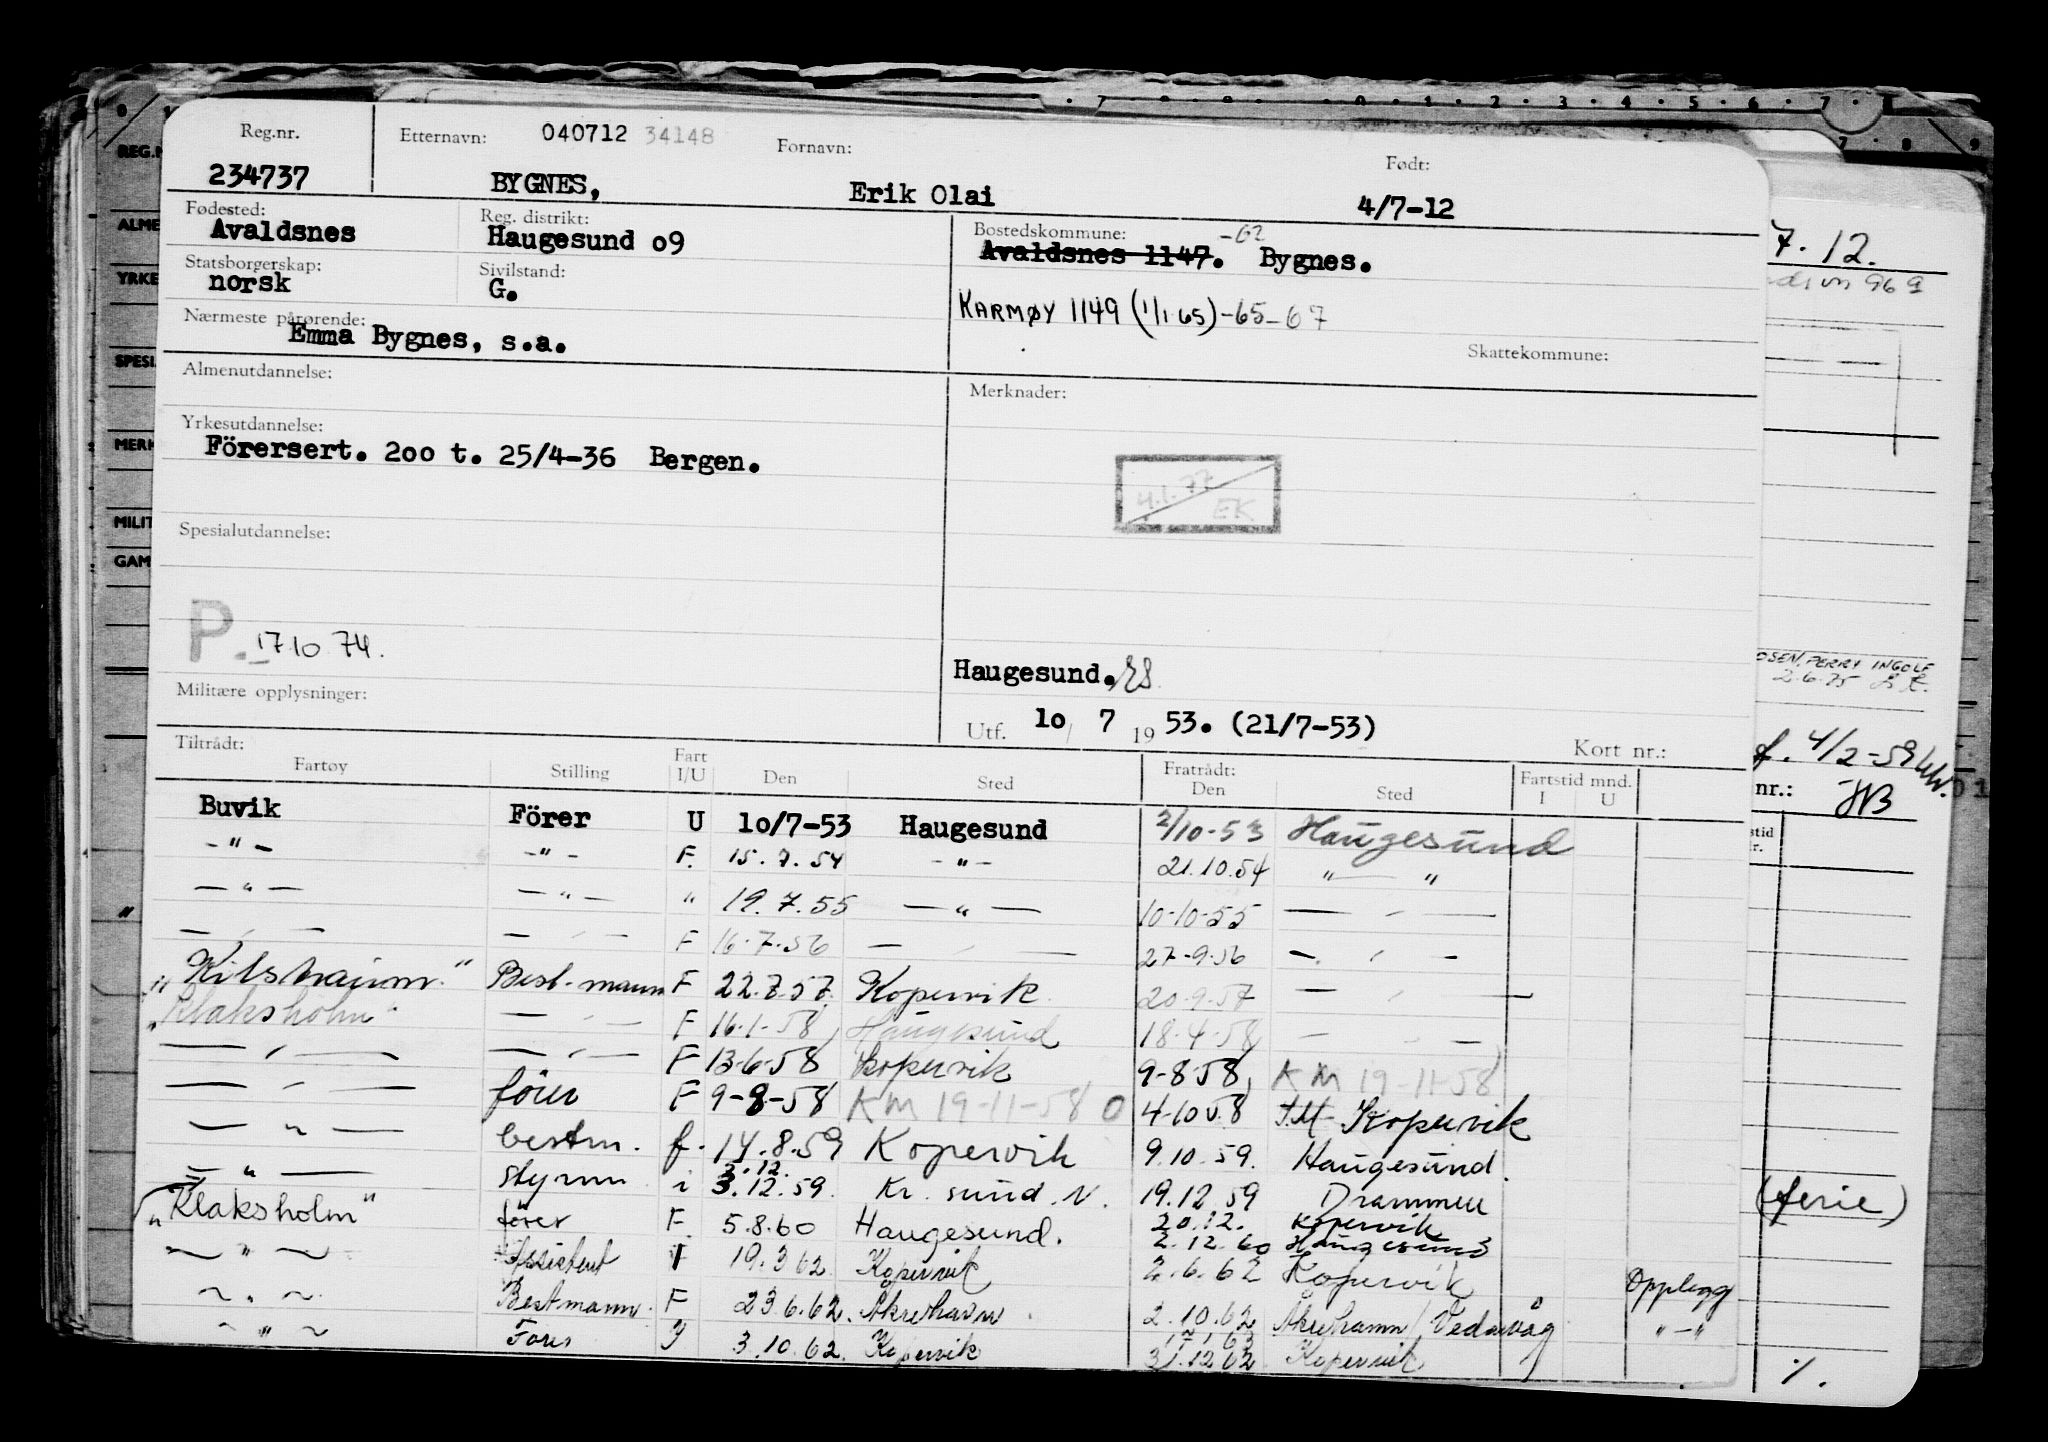 Reg.nr. Etternavn: 040712 34148 Fornavn: Født:
234737 BYGNES, Erik Olai 4/7-12
Fødested: Reg. distrikt: Bostedskommune:
Avaldsnes Haugesund o9 Avaldsnes 1147. -62 Bygnes.
Statsborgerskap: Sivilstand:
norsk G.
KARMØY 1149 (1/1 65) -65-67
Nærmeste pårørende:
Emma Bygnes, s.a.
Skattekommune:
Almenutdannelse: Merknader:
Yrkesutdannelse:
Förersert. 2oo t. 25/4-36 Bergen.
4.1.77
EK
Spesialutdannelse:
P. 17.10.74.
Haugesund.
Militære opplysninger:
Utf. 1o/ 7 19 53. (21/7-53)
Tiltrådt: Kort nr.:
Fartøy Stilling Fart I/U Den Sted Fratrådt: Den Sted Fartstid mnd. I U
Buvik Förer U 1o/7-53 Haugesund 2/10-53 Haugesund
-"- -"- F. 15.7.54 -"- 21.10.54 " — "
—"— —"— " 19.7.55 —"— 10-10-55 — " —
— " — — " — F 16.7.56 — " — 27-9-56 — " —
Best-mann F 22.7.57. Kopervik 20.9.57 — " —
"Klaksholm" — " — F 16.1.58 Haugesund 18.4.58 — " —
— " — — " — F 13-6-58 Kopervik 9-8-58 KM 19-11-58
— " — förer F 9-8-58 KM 19-11-58 4-10 58 Kopervik
— " — bestm. f. 14.8.59 Kopervik 9.10.59. Haugesund.
— " — styrm i 3.12.59. Kr. sund. N. 19.12 59 Drammen
3.12.
"Klaksholm" förer F. 5.8.60 Haugesund. 20.12. Kopervik
2.12.60 Haugesund
~ " ~ Assistent I 19.3 62 Kopervik 2.6.62 Kopervik Opplegg
~ " ~ Bestmann. F 23.6.62. Åkrehavn 2.10.62 Åkrehamn/Vedavåg "-"
~ " ~ Förer 3.10.62. Kopervik 31.12 62 Kopervik
7.12.
OSEN, PERRY INGOLF
2.6.75
f. 4/2-59
nr.: HB
(ferie)
REG.N
ALME
YRKE
SPESI
MERK
MILIT
GAM